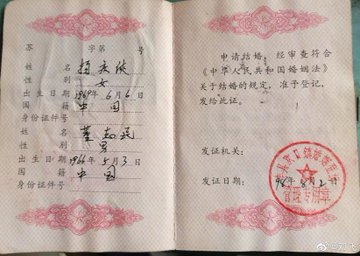 苏 字第 号
姓 名 杨
性 别 女
出生日期 1969年6月6日
国 籍 中国
身份证件号
姓 名 董志民
性 别 男
出生日期 1966年5月3日
国 籍 中国
身份证件号
申请结婚，经审查符合
《中华人民共和国婚姻法》
关于结婚的规定，准予登记，
发给此证。
发证机关：
发证日期：98年8月2日
管理专用章